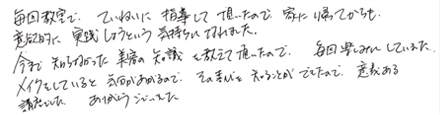 毎回教室で、ていねいに指導して頂いたので家に帰ってからも、
意欲的に実践しようという気持ちになれました。
今まで知らなかった美容の知識を教えて頂いたので、毎回楽しみにしていました。
メイクをしていると気分があがるので、その喜びを知ることができたので、意義ある
講座でした。ありがとうございました